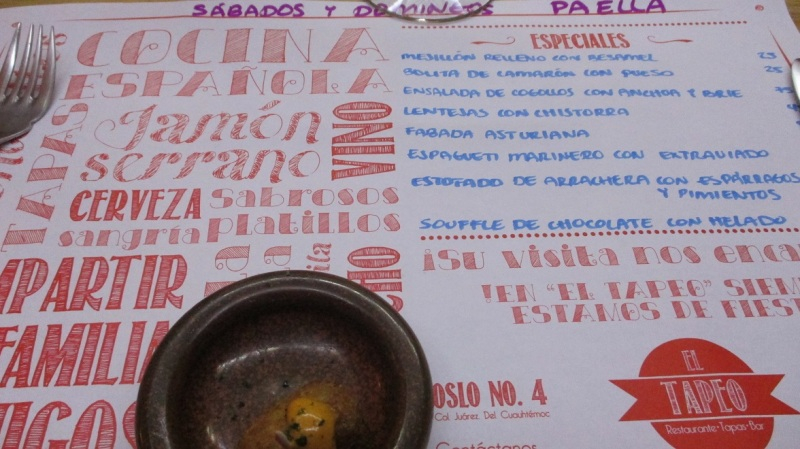 SÁBADOS Y DOMINGOS PAELLA
COCINA
ESPAÑOLA
Jamón
serrano
VINO
TAPAS
CERVEZA
sangría
sabrosos
platillos
FAMILIA
ESPECIALES
MEJILLÓN RELLENO CON BESAMEL 23
BOLITA DE CAMARÓN CON QUESO 25
ENSALADA DE COGOLLOS CON ANCHOA Y BRIE
LENTEJAS CON CHISTORRA
FABADA ASTURIANA
ESPAGUETI MARINERO CON EXTRAVIADO
ESTOFADO DE ARRACHERA CON ESPÁRRAGOS
Y PIMIENTOS
SOUFFLE DE CHOCOLATE CON HELADO
¡Su visita nos enca
!EN "EL TAPEO" SIEM
ESTAMOS DE FIEST
OSLO NO. 4
Col. Juárez. Del. Cuauhtémoc
Contáctanos
EL
TAPEO
Restaurante-Tapas-Bar